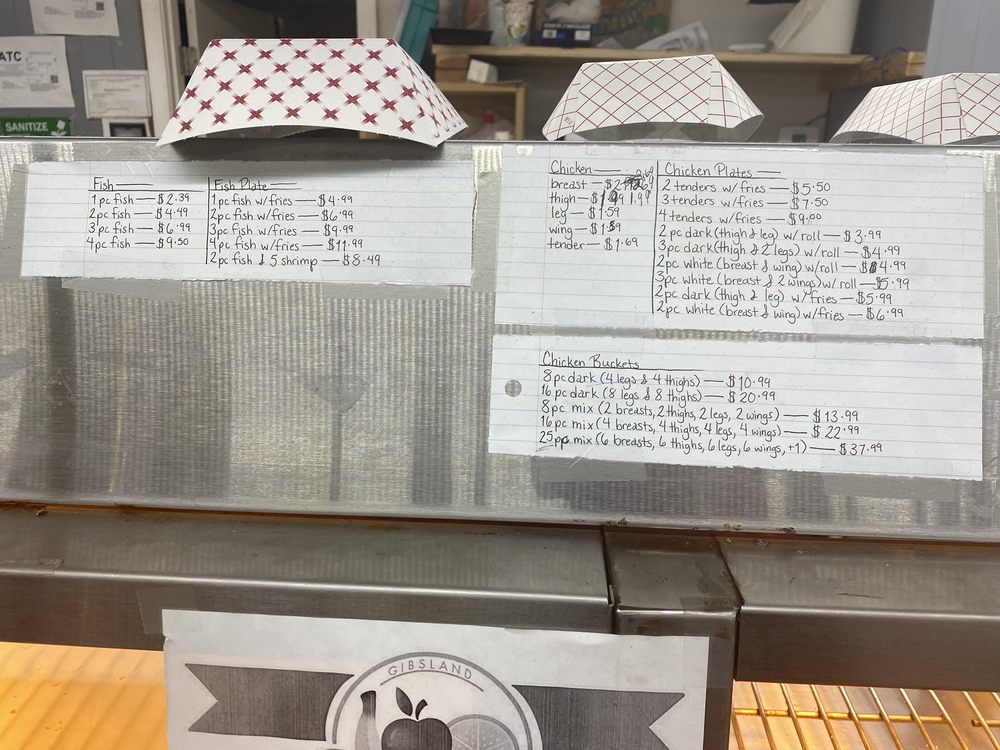 ATC
SANITIZE
Fish
1pc fish — $2.39
2pc fish — $4.49
3pc fish — $6.99
4pc fish — $9.50
Fish Plate
1pc fish w/fries — $4.99
2pc fish w/fries — $6.99
3pc fish w/fries — $9.99
4pc fish w/fries — $11.99
2pc fish & 5 shrimp — $8.49
Chicken
breast — $2
thigh — $1 1.99
leg — $1.59
wing — $1.59
tender — $1.69
Chicken Plates
2 tenders w/fries — $5.50
3 tenders w/fries — $7.50
4 tenders w/fries — $9.00
2pc dark (thigh & leg) w/ roll — $3.99
3pc dark (thigh & 2 legs) w/roll — $4.99
2pc white (breast & wing) w/roll — $4.99
3pc white (breast & 2 wings) w/ roll — $5.99
2pc dark (thigh & leg) w/fries — $5.99
2pc white (breast & wing) w/fries — $6.99
Chicken Buckets
8pc dark (4 legs & 4 thighs) — $10.99
16pc dark (8 legs & 8 thighs) — $20.99
8pc mix (2 breasts, 2 thighs, 2 legs, 2 wings) — $13.99
16pc mix (4 breasts, 4 thighs, 4 legs, 4 wings) — $22.99
25pc mix (6 breasts, 6 thighs, 6 legs, 6 wings, +1) — $37.99
GIBSLAND